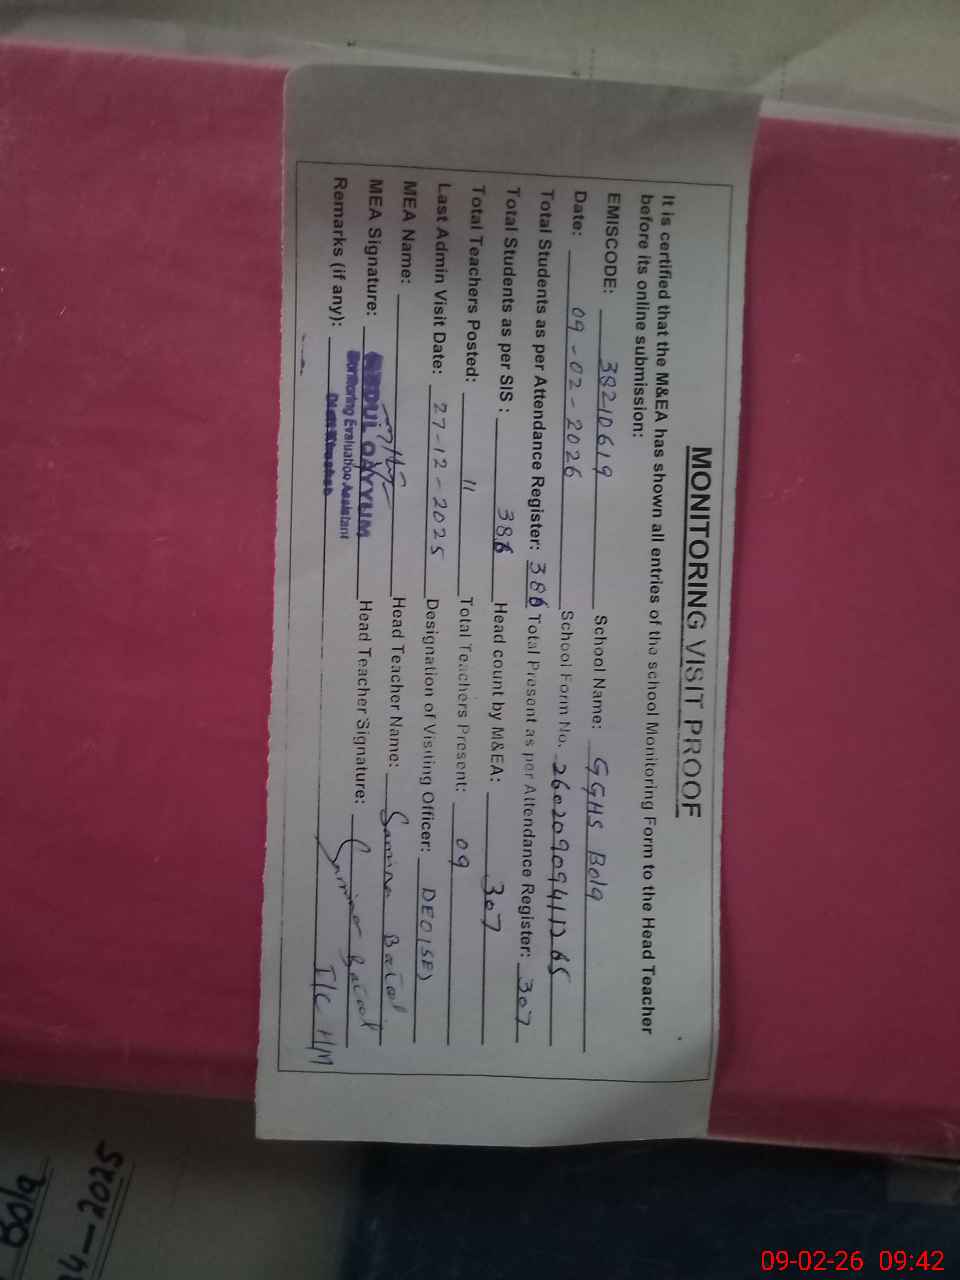 MONITORING VISIT PROOF
It is certified that the M&EA has shown all entries of the school Monitoring Form to the Head Teacher
before its online submission:
EMISCODE: 38210619 School Name: GGHS Bola
Date: 09-02-2026 School Form No. 26020909411265
Total Students as per Attendance Register: 386 Total Present as per Attendance Register: 307
Total Students as per SIS : 386 Head count by M&EA: 307
Total Teachers Posted: 11 Total Teachers Present: 09
Last Admin Visit Date: 27-12-2025 Designation of Visiting Officer: DEO(SE)
MEA Name: Head Teacher Name: Samina Batool
MEA Signature: ABDUL QAYYUM Head Teacher Signature: Samina Batool
Monitoring Evaluation Assistant
Remarks (if any): I/C H/M
Bola
4-2025
09-02-26 09:42